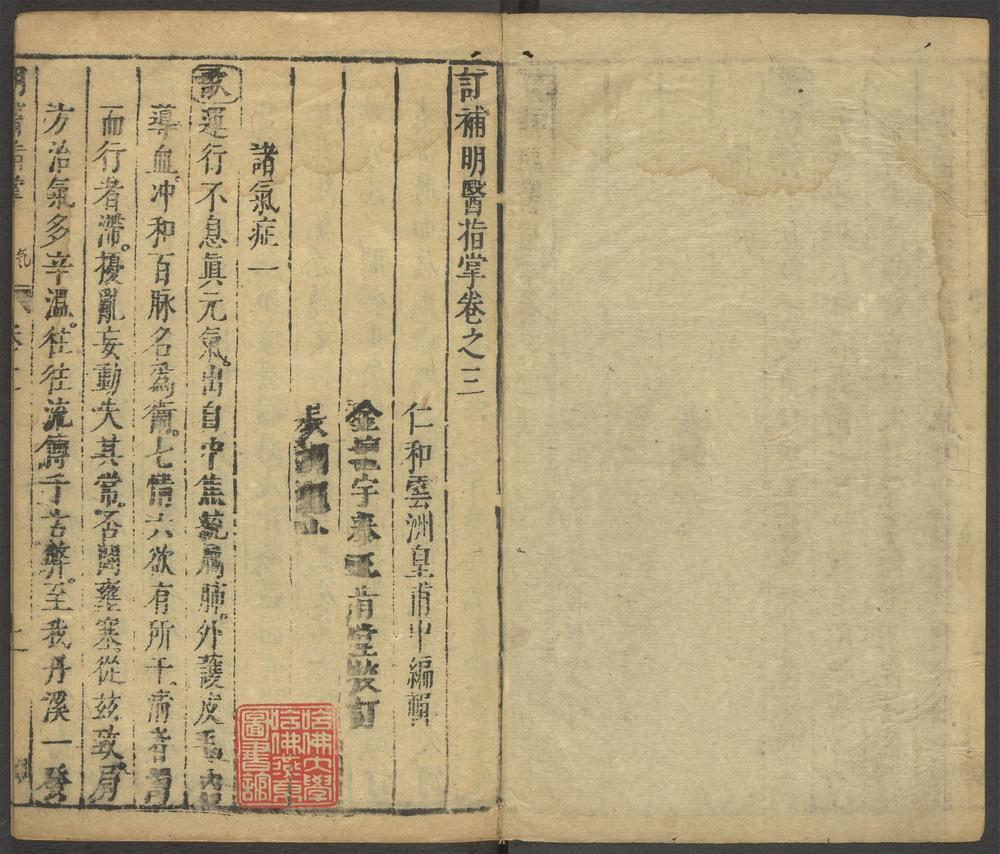 訂補明醫指掌卷之三
仁和雲洲皇甫中編輯
金壇宇泰王肯堂裝訂
諸氣症一
歌運行不息眞元氣出自中焦統屬肺外護皮毛内
導血冲和百脉名爲衞七情六欲有所干清者
而行者滯擾亂妄動失其常否閉壅塞從玆致屑
方治氣多辛温往往流傳千古弊至我丹溪一發
明醫指掌 氣
哈佛大學
哈佛燕京
圖書舘